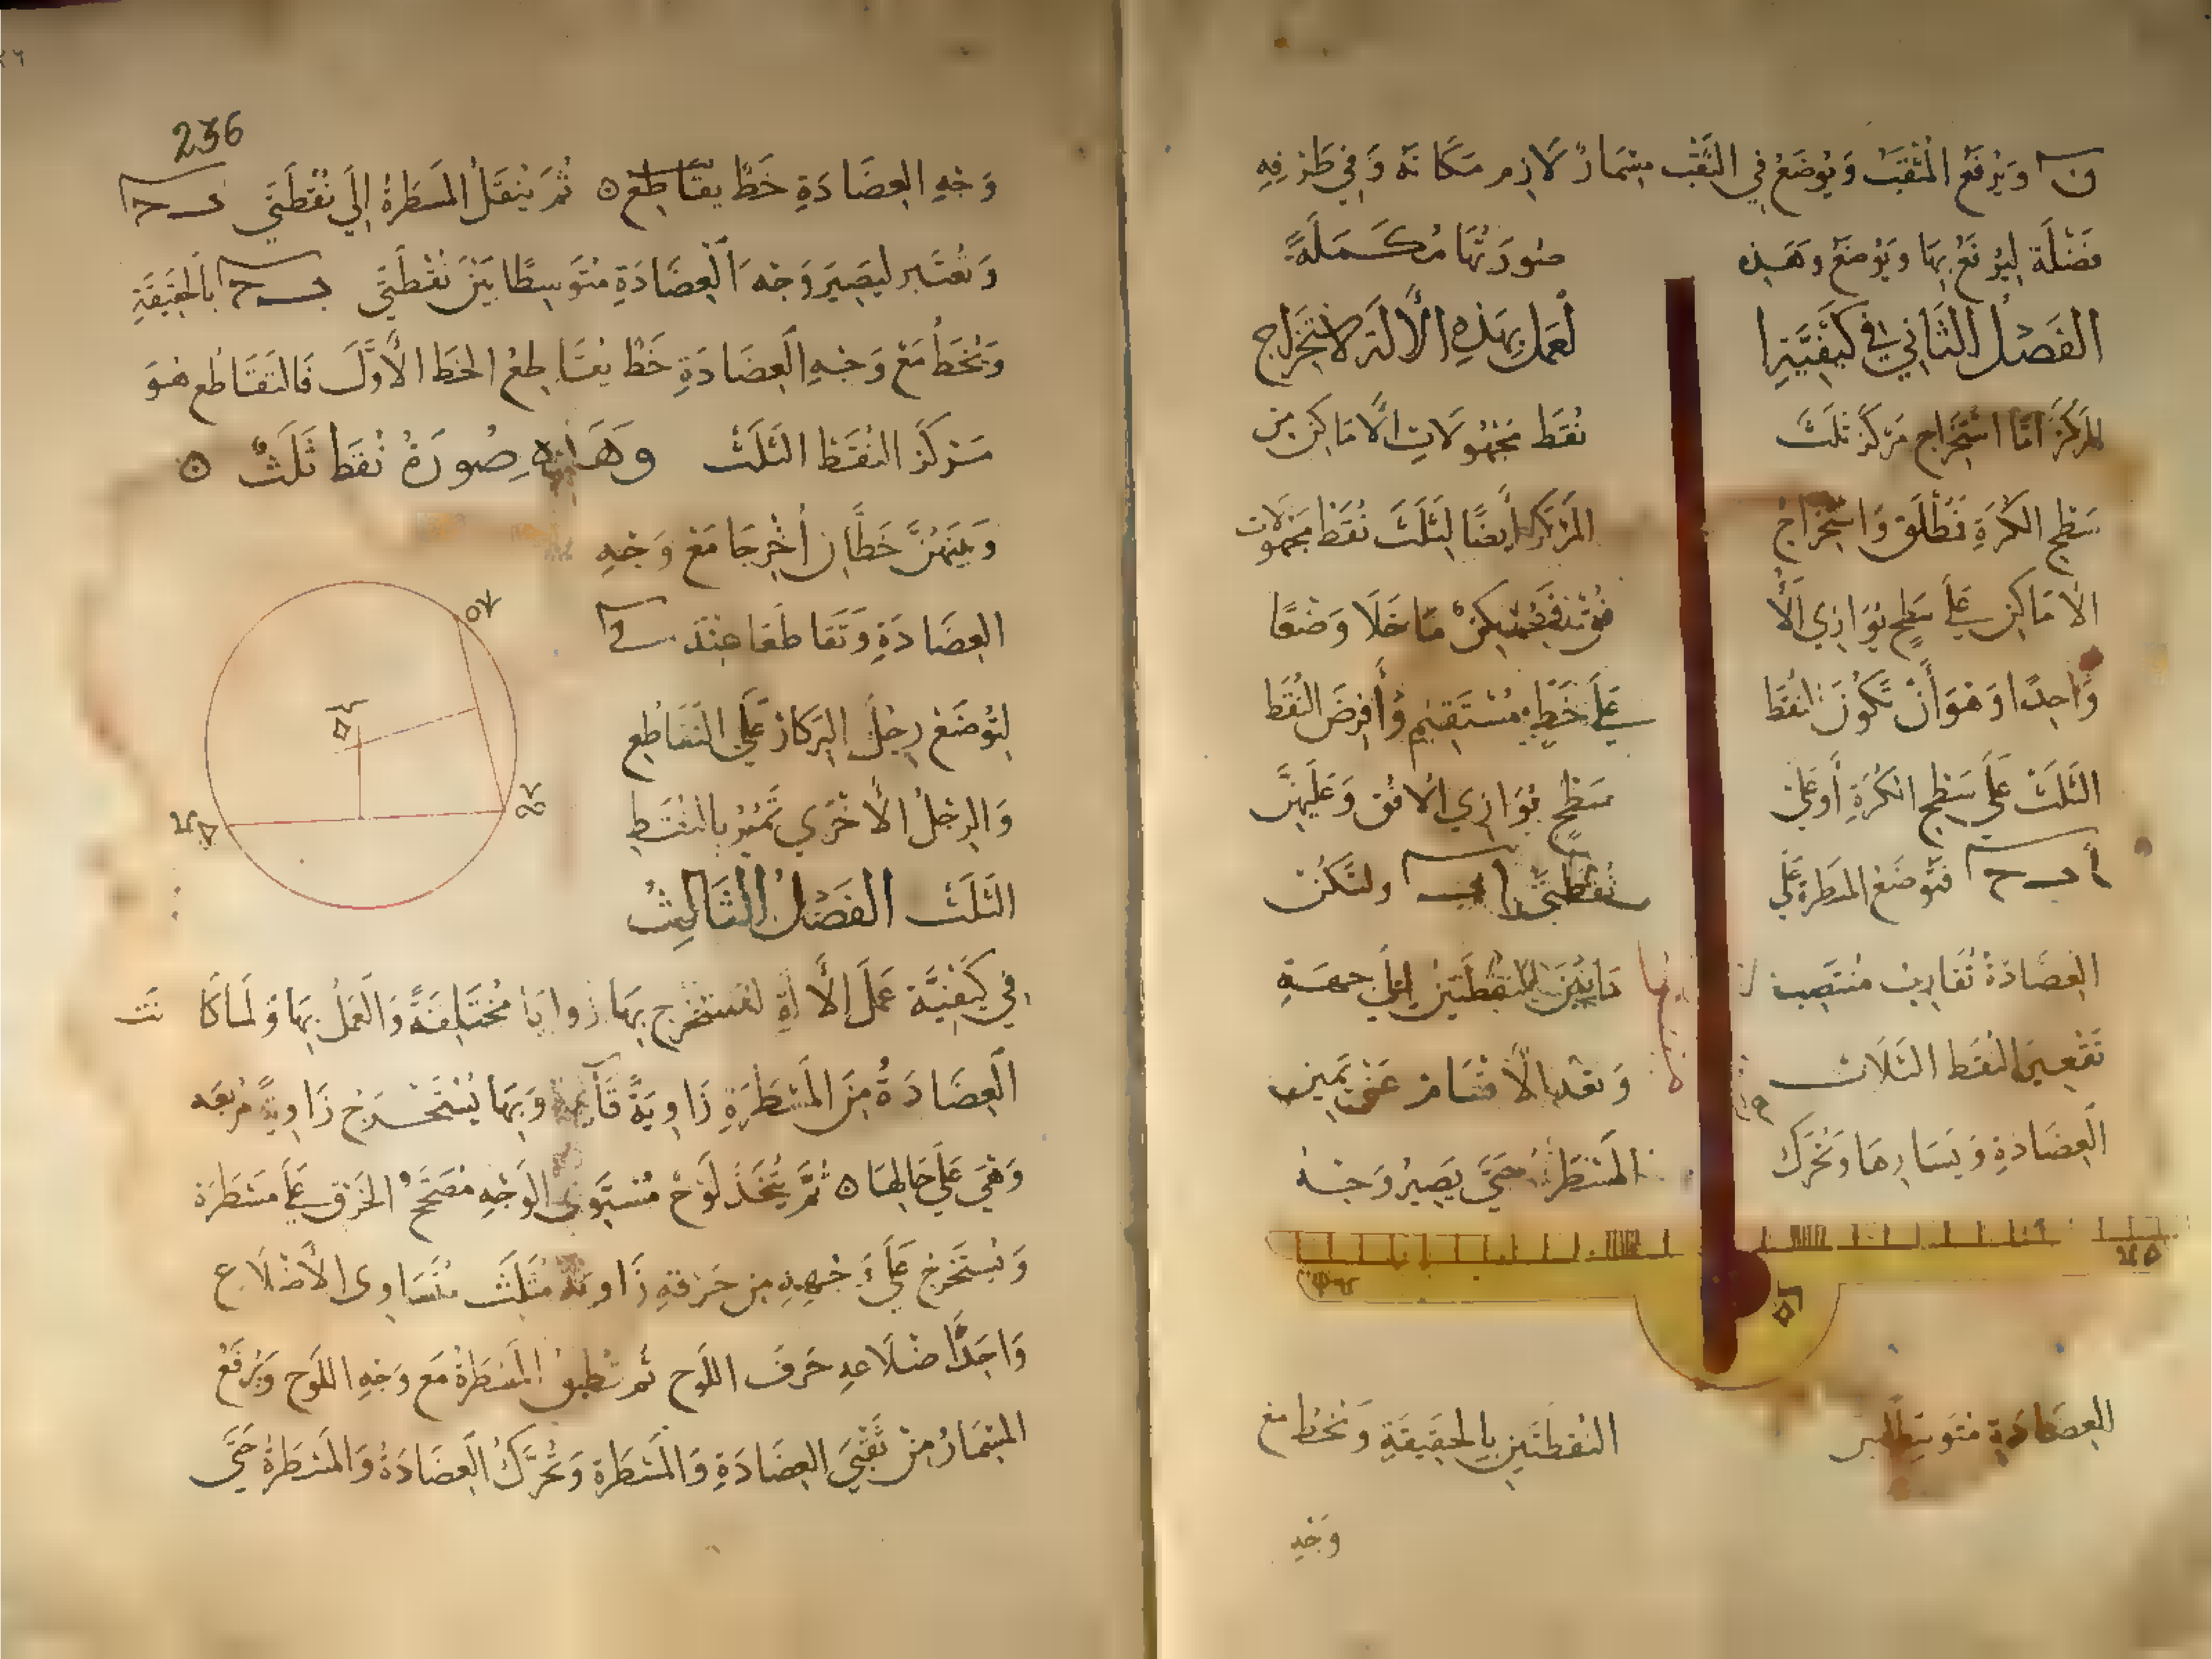 ن ويرفع المثقب ويوضع في الثقب مسمار لازم مكانه وفي طرفه
فضلة ليرفع بها ويوضع وهذه صورتها مكملة
الفصل الثاني في كيفية العمل بهذه الآلة لاستخراج
المركز أما استخراج مركز ثلث نقط مجهولات الأماكن من
سطح الكرة فتطلق واستخراج المركز أيضا لثلث نقط مجهولات
الأماكن على سطح يوازي الأفق فممكن ما خلا وضعا
واحدا وهو أن تكون النقط على خط مستقيم وأفرض النقط
الثلث على سطح الكرة أو على سطح يوازي الأفق وعليهن
ا ب ح فتوضع المسطرة على نقطتي ا ب ولتكن
العضادة تقاريب منتصب ما بين النقطتين إلى جهة
تقعير النقط الثلاث وبعد الأقسام عن يمين
العضادة ويسارها وتحرك المسطرة حتى يصير وجه
العضادة متوسط النقطتين بالحقيقة ونخط مع
وجه
236
وجه العضادة خط يقاطع ه ثم ينقل المسطرة إلى نقطتي ب ح
وتعتبر ليصير وجه العضادة متوسطا بين نقطتي ب ح بالحقيقة
ونخط مع وجه العضادة خط يقاطع الخط الأول فالتقاطع هو
مركز النقط الثلث وهذه صورة نقط ثلث ه
وبينهن خطان أخرجا مع وجه
العضادة وتقاطعا عند
لتوضع رجل البركار على التقاطع
والرجل الأخرى تمر بالنقط
الثلث الفصل الثالث
في كيفية عمل الآلة لتستخرج بها زوايا مختلفة والعمل بها ولما كانت
العضادة من المسطرة زاوية قائمة وبها يستخرج زاوية مربعه
وهي على حالها ه ثم يتخذ لوح مستوي الوجه مصحح الحرف على مسطرة
ويستخرج على وجهه من حرفه زاوية مثلث متساوى الأضلاع
واحد أضلاعه حرف اللوح ثم تطبق المسطرة مع وجه اللوح ويرفع
المسمار من ثقبي العضادة والمسطرة وتحرك العضادة والمسطرة حتى